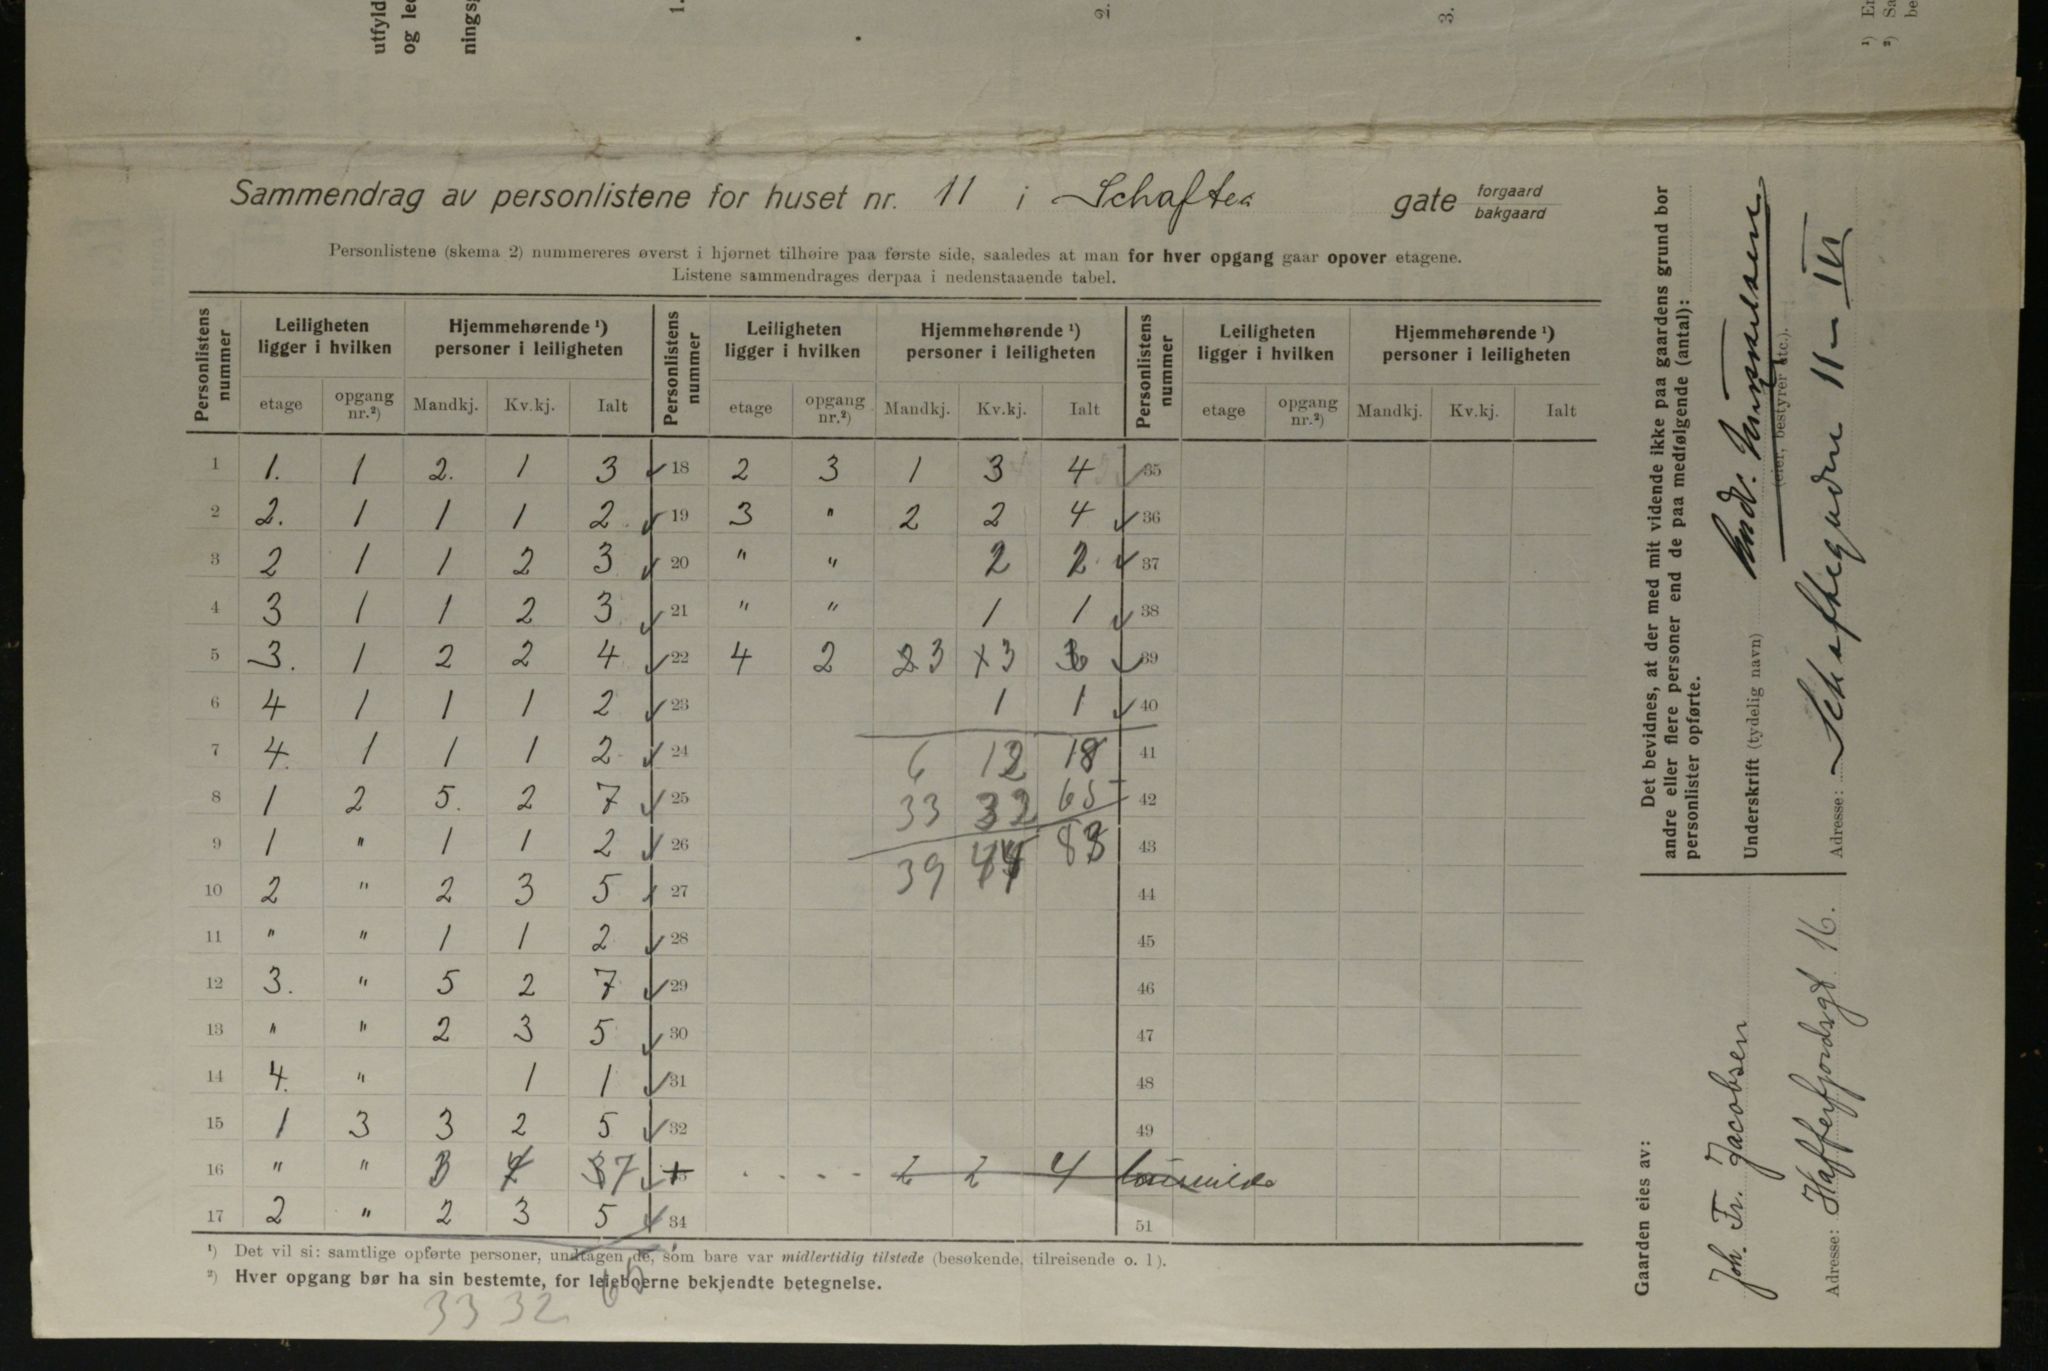 utfyld
og led
nings
1.
2.
3.
¹) En
²) Sa
be
Sammendrag av personlistene for huset nr. 11 i Schaftes gate forgaard
bakgaard
Personlistene (skema 2) nummereres øverst i hjørnet tilhøire paa første side, saaledes at man for hver opgang gaar opover etagene.
Listene sammendrages derpaa i nedenstaaende tabel.
Personlistens nummer | Leiligheten ligger i hvilken | Hjemmehørende ¹) personer i leiligheten | Personlistens nummer | Leiligheten ligger i hvilken | Hjemmehørende ¹) personer i leiligheten | Personlistens nummer | Leiligheten ligger i hvilken | Hjemmehørende ¹) personer i leiligheten
etage | opgang nr.²) | Mandkj. | Kv.kj. | Ialt | etage | opgang nr.²) | Mandkj. | Kv.kj. | Ialt | etage | opgang nr.²) | Mandkj. | Kv.kj. | Ialt
1 1. 1 2. 1 3 ✓ 18 2 3 1 3 4 ✓ 35
2 2. 1 1 1 2 ✓ 19 3 " 2 2 4 ✓ 36
3 2 1 1 2 3 ✓ 20 " " 2 2 ✓ 37
4 3 1 1 2 3 ✓ 21 " " 1 1 ✓ 38
5 3. 1 2 2 4 ✓ 22 4 2 3 3 6 ✓ 39
6 4 1 1 1 2 ✓ 23 1 1 ✓ 40
7 4. 1 1 1 2 ✓ 24 6 12 18 41
8 1 2 5. 2 7 ✓ 25 33 32 65 42
9 1 " 1 1 2 ✓ 26 39 44 83 43
10 2 " 2 3 5 ✓ 27 44
11 " " 1 1 2 ✓ 28 45
12 3. " 5 2 7 ✓ 29 46
13 " " 2 3 5 ✓ 30 47
14 4. " 1 1 ✓ 31 48
15 1 3 3 2 5 ✓ 32 49
16 " " 3 4 7 ✓ 2 2 4
17 2 " 2 3 5 ✓ 34 51
¹) Det vil si: samtlige opførte personer, undtagen de, som bare var midlertidig tilstede (besøkende, tilreisende o. l).
²) Hver opgang bør ha sin bestemte, for leieboerne bekjendte betegnelse.
33 32 65
Det bevidnes, at der med mit vidende ikke paa gaardens grund bor
andre eller flere personer end de paa medfølgende (antal):
personlister opførte.
Underskrift (tydelig navn)
(eier, bestyrer etc.).
Adresse: Schaftegaden 11 - IV
Gaarden eies av:
Joh. Fr. Jacobsen
Adresse: Haffenfjordsgt 16.